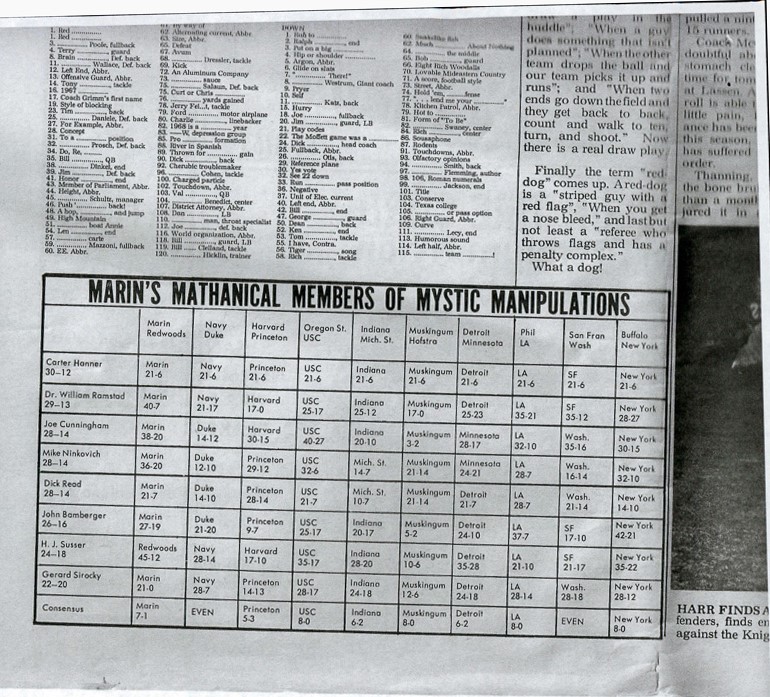 1. Red
2. Red
3. ............ Poole, fullback
4. Terry ............, guard
8. Brain ............ Def. back
11. ............ Wallace, Def. back
12. Left End, Abbr.
13. Offensive Guard, Abbr.
14. Tony ............, tackle
16. 196?
17. Coach Grimm's first name
19. Style of blocking
23. Tim ............, back
25. ............ Daniele, Def. back
27. For Example, Abbr.
28. Concept
31. To a ............ position
32. ............ Prosch, Def. back
34. Do, Re, ............
35. Bill ............ QB
38. ............ Dinkel, end
39. Jim ............ Def. back
41. Honor ............, end
43. Member of Parliament, Abbr.
44. Height, Abbr.
45. ............ Schultz, manager
46. Push ............ back!
48. A hop, ............ and jump
49. High Mountain
51. ............ boat Annie
54. Len ............, end
57. ............ carte
59. ............ Mazzoni, fullback
60. EE. Abbr.
61. By way of
62. Alternating current, Abbr.
63. Size, Abbr.
65. Defeat
67. Avum
68. ............ Dressler, tackle
69. Kick
72. An Aluminum Company
73. ............ sauce
75. ............ Salaun, Def. back
76. Curt or Chris
77. ............ yards gained
78. Jerry Fei..t, tackle
79. Ford ............ motor airplane
80. Charlie ............, linebacker
82. 1968 is a ............ year
83. — W. depression group
85. Pro ............ formation
88. River in Spanish
89. Thrown for ............ gain
90. Dick ............ back
92. Cherubic troublemaker
96. ............ Cohen, tackle
100. Charged particle
102. Touchdown, Abbr.
103. Val ............ QB
104. ............ Benedict, center
107. District Attorney, Abbr.
108. Dan ............ LB
110. ............ man, throat specialist
112. Joe ............, def. back
116. World organization, Abbr.
118. Bill ............ guard, LB
119. Bill ............ Clelland, tackle
120. ............ Hicklin, trainer
DOWN
1. Run to ............
2. Ralph ............ end
3. Put on a big ............
4. Hip or shoulder ............
5. Argon, Abbr.
6. Glide on slats
7. "............ There!"
8. ............ Westrum, Giant coach
9. Fryer
10. Self
11. ............ Katz, back
15. Hurry
18. Joe ............ fullback
20. Jim ............ guard, LB
21. Play codes
22. The Moffet game was a ............
24. Dick ............ head coach
25. Fullback, Abbr.
26. ............ Otis, back
29. Reference plane
30. Yes vote
32. See 22 down
33. Run ............ pass position
36. Negative
37. Unit of Elec. current
40. Left end, Abbr.
42. Bill ............ end
47. George ............ guard
50. Dean ............ back
52. Ken ............ end
53. Tom ............, tackle
55. I have, Contra.
56. Tiger ............ song
58. Rich ............ tackle
60. Snakelike fish
62. Much ............ About Nothing
64. ............ the middle
65. Bob ............ guard
66. Right Rich Woodalls
70. Lovable Mideastern Country
71. A score, football style
73. Street, Abbr.
74. Hold 'em, ............ fense
77. ". . . lend me your ............"
78. Kitchen Patrol, Abbr.
79. Hot to ............
81. Form of "To Be"
82. ............ Swaney, center
84. Rich ............ center
86. Sousaphone
87. Rodents
91. Touchdowns, Abbr.
93. Olfactory opinions
94. ............ Smith, back
97. ............ Flemming, author
98. 106, Roman numerals
99. ............ Jackson, end
101. Title
103. Conserve
104. Texas college
105. ............ or pass option
106. Right Guard, Abbr.
109. Curve
111. ............ Lecy, end
113. Humorous sound
114. Left half, Abbr.
115. ............ team ............!
draw a play in the
huddle"; "When a guy
does something that isn't
planned"; "When the other
team drops the ball and
our team picks it up and
runs"; and "When two
ends go down the field and
they get back to back,
count and walk to ten,
turn, and shoot." Now
there is a real draw play.
Finally the term "red-
dog" comes up. A red-dog
is a "striped guy with a
red flag", "When you get
a nose bleed," and last but
not least a "referee who
throws flags and has a
penalty complex."
What a dog!
pulled a
15 runners.
Coach Mc
doubtful abo
stomach ch
time for
at Lassen. A
roll is n
little pain,
ance has bee
this season,
has suffered
order.
Thanung,
the bone bru
than a mont
jured it
MARIN'S MATHANICAL MEMBERS OF MYSTIC MANIPULATIONS
Marin Redwoods Navy Duke Harvard Princeton Oregon St. USC Indiana Mich. St. Muskingum Hofstra Detroit Minnesota Phil LA San Fran Wash Buffalo New York
Carter Hanner 30–12 Marin 21-6 Navy 21-6 Princeton 21-6 USC 21-6 Indiana 21-6 Muskingum 21-6 Detroit 21-6 LA 21-6 SF 21-6 New York 21-6
Dr. William Ramstad 29–13 Marin 40-7 Navy 21-17 Harvard 17-0 USC 25-17 Indiana 25-12 Muskingum 17-0 Detroit 25-23 LA 35-21 SF 35-12 New York 28-27
Joe Cunningham 28–14 Marin 38-20 Duke 14-12 Harvard 30-15 USC 40-27 Indiana 20-10 Muskingum 3-2 Minnesota 28-17 LA 32-10 Wash. 35-16 New York 30-15
Mike Ninkovich 28–14 Marin 36-20 Duke 12-10 Princeton 29-12 USC 32-6 Mich. St. 14-7 Muskingum 21-14 Minnesota 24-21 LA 28-7 Wash. 16-14 New York 32-10
Dick Read 28–14 Marin 21-7 Duke 14-10 Princeton 28-14 USC 21-7 Mich. St. 10-7 Muskingum 21-14 Detroit 21-7 LA 28-7 Wash. 21-14 New York 14-10
John Bamberger 26–16 Marin 27-19 Duke 21-20 Princeton 9-7 USC 25-17 Indiana 20-17 Muskingum 5-2 Detroit 24-10 LA 37-7 SF 17-10 New York 42-21
H. J. Susser 24–18 Redwoods 45-12 Navy 28-14 Harvard 17-10 USC 35-17 Indiana 28-20 Muskingum 10-6 Detroit 35-28 LA 21-10 SF 21-17 New York 35-22
Gerard Sirocky 22–20 Marin 21-0 Navy 28-7 Princeton 14-13 USC 28-17 Indiana 24-18 Muskingum 12-6 Detroit 24-18 LA 28-14 Wash. 28-18 New York 28-12
Consensus Marin 7-1 EVEN Princeton 5-3 USC 8-0 Indiana 6-2 Muskingum 8-0 Detroit 6-2 LA 8-0 EVEN New York 8-0
HARR FINDS A
fenders, finds en
against the Knig